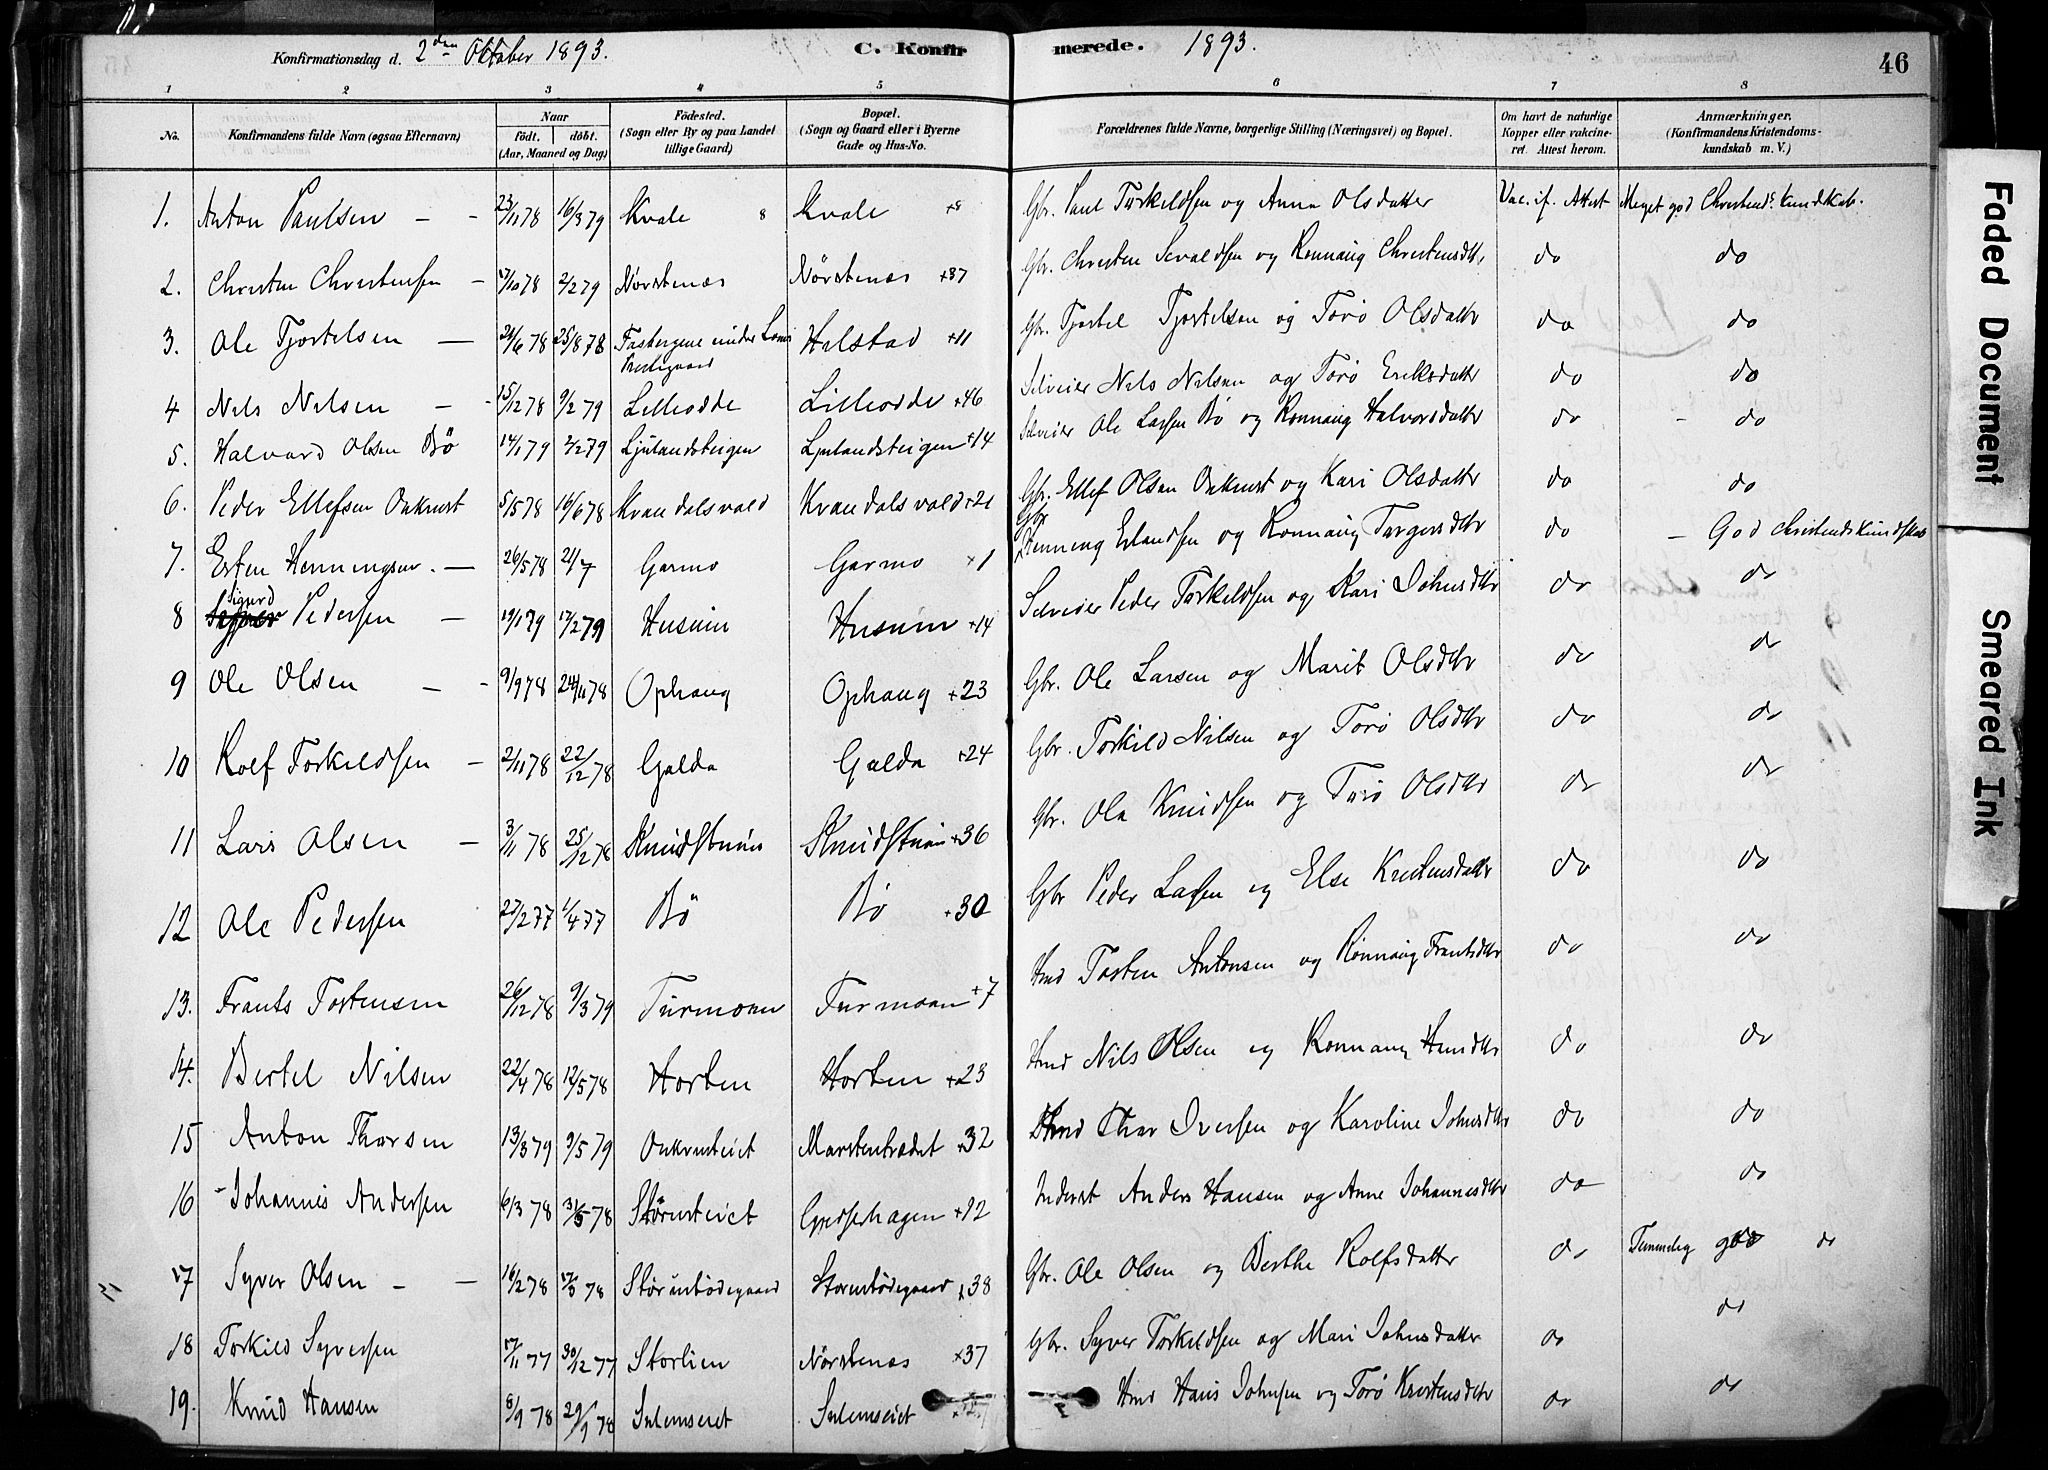 Konfirmationsdag d. 2den Oktober 1893. C. Konfirmerede. 1893. 46
1 2 3 4 5 6 7 8
No. Konfirmandens fulde Navn (ogsaa Efternavn) Naar født. døbt. (Aar, Maaned og Dag) Födested. (Sogn eller By og paa Landet tillige Gaard) Bopæl. (Sogn og Gaard eller i Byerne Gade og Hus-No. Forældrenes fulde Navne, borgerlige Stilling (Næringsvei) og Bopæl. Om havt de naturlige Kopper eller vakcineret. Attest herom. Anmærkninger. (Konfirmandens Kristendomskundskab m. V.)
1. Anton Paulsen 23/11 78 16/3 79 Kvale Kvale +8 Gbr. Paul Torkildsen og Anna Olsdatter Vac. if. Attest Meget god Christends. Kundskab.
2. Christen Christensen 17/10 78 2/2 79 Nörstenæs Nörstenæs +37 Gbr. Christen Sevaldsen og Rønnaug Christensdtr. do do
3. Ole Tjostelsen 24/6 78 25/8 78 under Loms Prestegaard Hilstad +11 Gbr. Tjostel Tjostelsen og Torø Olsdattr do do
4 Nils Nilsen 15/12 78 9/2 79 Lilleodde Lilleodde +46 Selveier Nils Nilsen og Torø Eriksdattr do do
5. Halvard Olsen Bö 14/1 79 2/2 79 Ljulandsteigen Ljulandsteigen +14 Selveier Ole Larsen Bø og Rønnaug Halvorsdatter do - do
6. Peder Ellefsen Oukrust 5/5 78 16/6 78 Kvandalsvold Kvandalsvold +21 Gbr. Ellef Olsen Oukrust og Kari Olsdattr do do
7. Esten Henningsen. 26/5 78 21/7 Garmo Garmo +1 Gbr Henning Erlandsen og Rønnaug Torgersdtr do - God Christendskundskab
8 Sigurd Pedersen 19/1 79 17/2 79 Husum Husum +14 Selveier Peder Torkildsen og Kari Johnsdtr do do
9 Ole Olsen 9/9 78 24/11 78 Ophaug Ophaug +23 Gbr. Ole Larsen og Marit Olsdtr do do
10 Rolf Torkildsen 2/11 78 22/12 78 Galde Galde +24 Gbr. Torkild Nilsen og Torø Olsdtr do do
11 Lars Olsen 3/11 78 25/12 78 Knudstuen Knudstuen +36 Gbr. Ola Knudsen og Torø Olsdtr do do
12 Ole Pedersen 25/2 77 1/4 77 Bö Bö +30 Gbr Peder Larsen og Else Kristensdattr do do
13. Frants Tostensen 26/12 78 9/3 79 Turmoen Furmoen +7 Hmd Tosten Antonsen og Rønnaug Frantsdtr do do
14. Bertel Nilsen 22/4 78 12/5 78 Horten Horten +23 Hmd Nils Olsen og Rønnaug Hansdtr do do
15 Anton Thorsen 13/3 79 9/5 79 Oukrusteiet Marstentrædet +32 Hmd Thor Iversen og Karoline Johnsdtr do do
16 Johannes Andersen 6/3 78 31/3 78 Störusteiet Grepsehagen +12 Inderst Anders Hansen og Anne Johannesdtr do do
17 Syver Olsen 16/2 78 17/3 78 Störustødegaard Storustødegaard +38 Gbr. Ole Olsen og Berthe Rolfsdatter do Temmelig god do
18 Torkild Syversen 17/11 77 30/12 77 Storlien Nörstenæs +37 Gbr. Syver Torkildsen og Mari Johnsdatter do do
19. Knud Hansen 8/9 78 29/9 78 Sulemseiet Sulemseiet Hmd Hans Johnsen og Torø Kristensdtr do do
Faded Document Smeared Ink